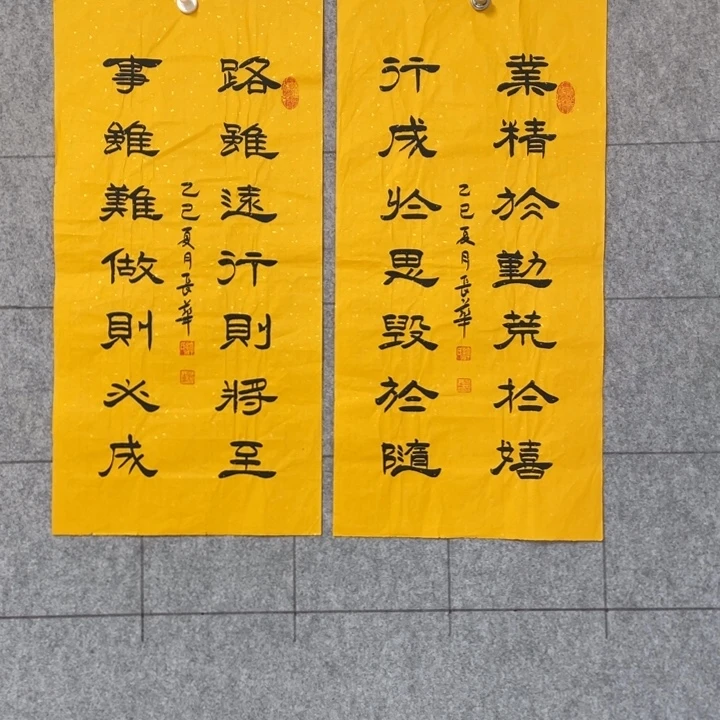 業精於勤荒於嬉
行成於思毀於隨
乙巳夏月長華
路雖遠行則將至
事雖難做則必成
乙巳夏月長華